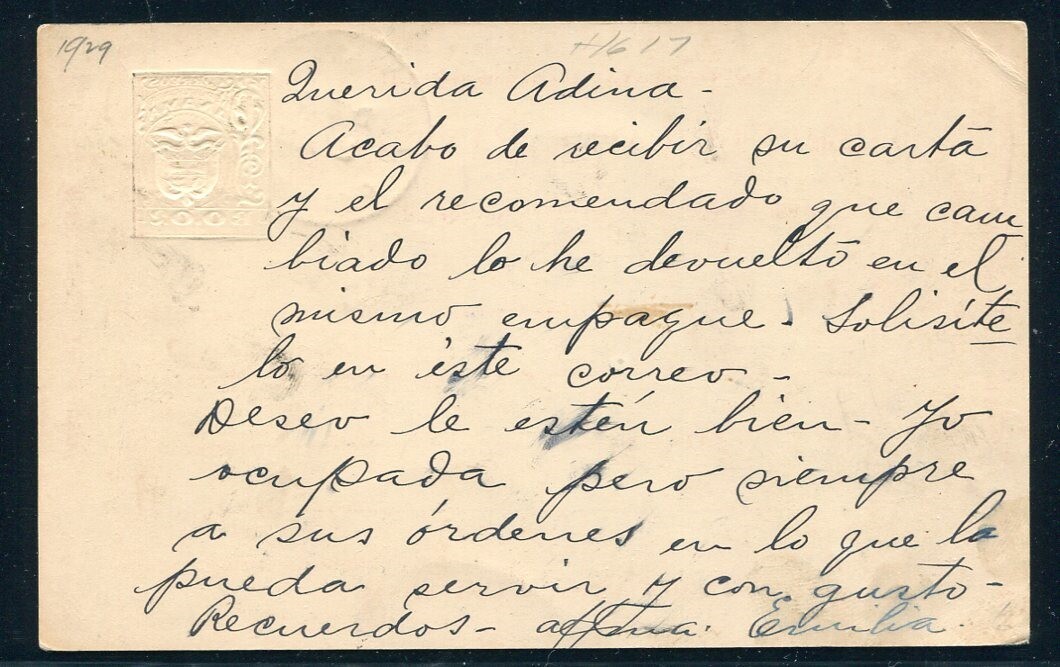 1929
H617
Querida Adina -
Acabo de recibir su carta
y el recomendado que cam
biado lo he devuelto en el
mismo empaque. Solisíte
lo en éste correo -
Deseo le estén bien - Yo
ocupada pero siempre
a sus órdenes en lo que la
pueda servir y con gusto -
Recuerdos - affma. Emilia.